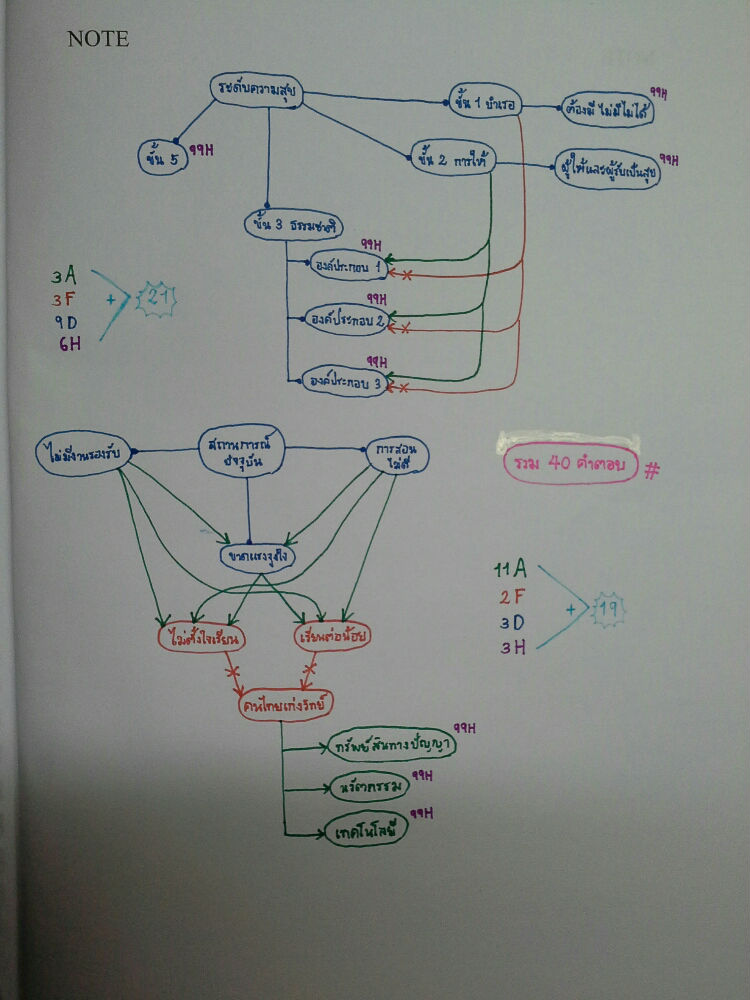 NOTE
ระดับความสุข
ขั้น 1 บำเรอ
99H
ต้องมี ไม่มีไม่ได้
ขั้น 5
99H
ขั้น 2 การให้
99H
ผู้ให้และผู้รับเป็นสุข
ขั้น 3 ธรรมชาติ
99H
องค์ประกอบ 1
99H
องค์ประกอบ 2
99H
องค์ประกอบ 3
3A
3F
9D
6H
+
21
ไม่มีงานรองรับ
สถานการณ์
ปัจจุบัน
การสอน
ไม่ดี
รวม 40 คำตอบ #
ขาดแรงจูงใจ
ไม่ตั้งใจเรียน
เรียนต่อน้อย
11A
2F
3D
3H
+
19
คนไทยเก่งวิทย์
99H
ทรัพย์สินทางปัญญา
99H
นวัตกรรม
99H
เทคโนโลยี